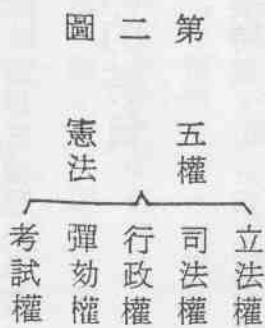 第二圖
五權憲法
立法權
司法權
行政權
彈劾權
考試權